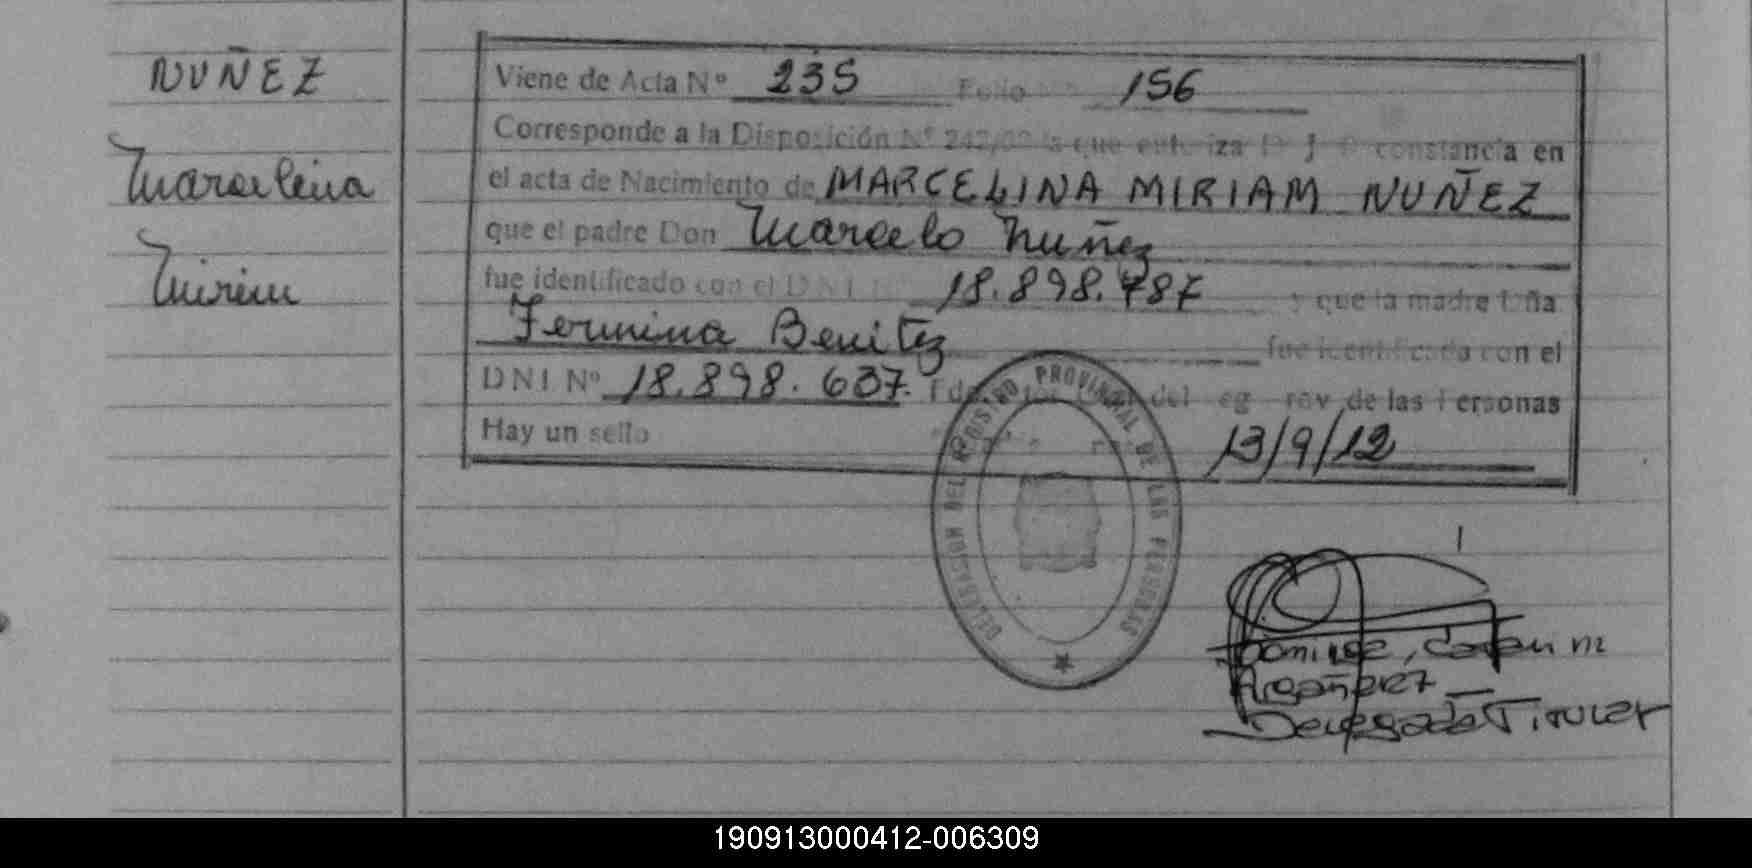 NUÑEZ
Marcelina
Miriam
Viene de Acta Nº 235 Folio Nº 156
Corresponde a la Disposición Nº 242/02 la que autoriza constancia en
el acta de Nacimiento de MARCELINA MIRIAM NUÑEZ
que el padre Don Marcelo Nuñez
fue identificado con el D N I Nº 18.898.787 y que la madre Dña
Fermina Benitez fue identificada con el
DNI Nº 18.898.637. del de las Personas
Hay un sello
13/9/12
DELEGACION DEL REGISTRO PROVINCIAL DE LAS PERSONAS
Argañarez
Delegada Titular
190913000412-006309